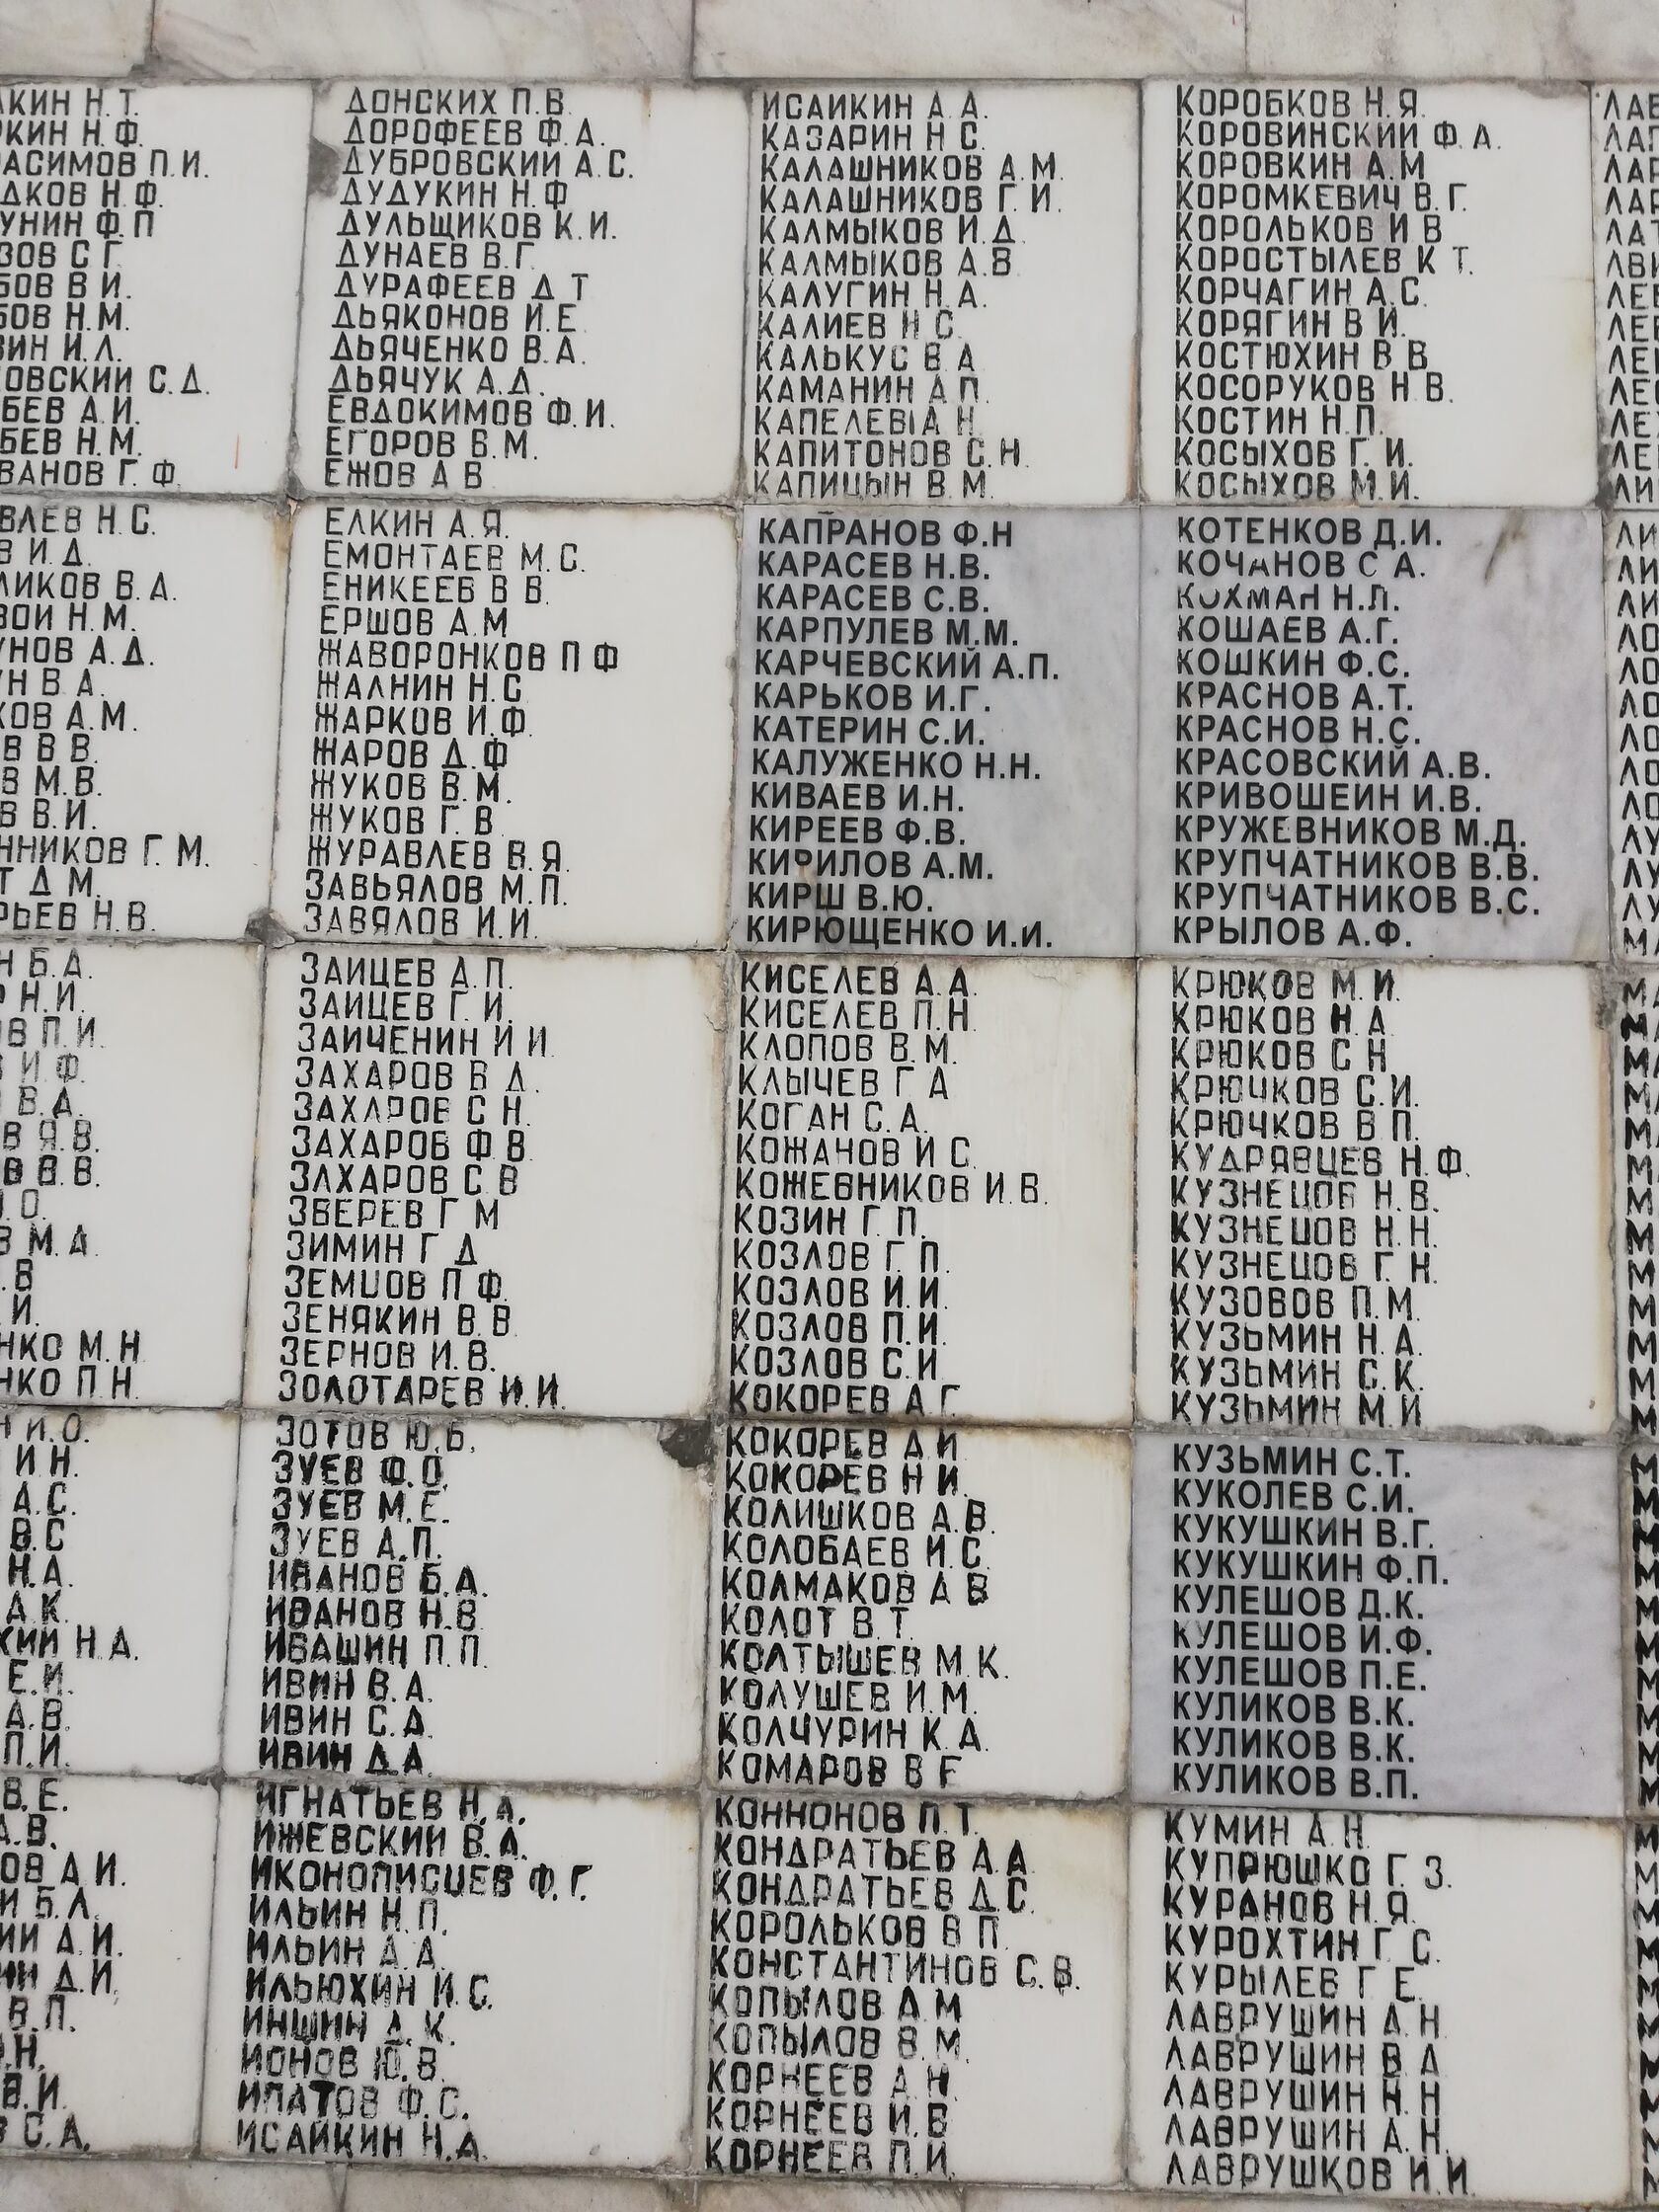 КИН Н.Т.
КИН Н.Ф.
АСИМОВ П.И.
ДКОВ Н.Ф.
УНИН Ф.П
ЗОВ С Г.
БОВ В И.
БОВ Н.М.
ВИН И.Л.
ОВСКИИ С.Д.
БЕВ А.И.
БЕВ Н.М.
ВАНОВ Г. Ф.
ВЛЕВ Н.С.
В И.Д.
ЛИКОВ В.А.
ВОИ Н.М.
УНОВ А.Д.
Н В А.
КОВ А.М.
В В В.
В М.В.
В В.И.
ННИКОВ Г. М.
Т Д М.
РЬЕВ Н.В.
Н Б.А.
Р Н.И.
ОВ П.И.
И.Ф.
В.А.
В Я.В.
В В.В.
О.
В М.А.
.В
И.
НКО М.Н
НКО П.Н.
Н И.О.
И Н.
А.С.
В.С
Н.А.
А.К.
КИИ Н.А.
Е.И.
А.В.
П.И.
В.Е.
А.В.
ОВ А И.
И Б.Л.
ИИ А.И.
ИН Д.И.
В.П.
Н.
В.И.
В С.А.
ДОНСКИХ П.В.
ДОРОФЕЕВ Ф.А.
ДУБРОВСКИИ А.С.
ДУДУКИН Н.Ф
ДУЛЬЩИКОВ К.И.
ДУНАЕВ В.Г.
ДУРАФЕЕВ Д Т
ДЬЯКОНОВ И.Е.
ДЬЯЧЕНКО В.А.
ДЬЯЧУК А.Д.
ЕВДОКИМОВ Ф.И.
ЕГОРОВ В.М.
ЕЖОВ А В
ЕЛКИН А.Я.
ЕМОНТАЕВ М.С.
ЕНИКЕЕВ В В.
ЕРШОВ А.М
ЖАВОРОНКОВ П Ф
ЖАЛНИН Н.С
ЖАРКОВ И.Ф.
ЖАРОВ Д.Ф
ЖУКОВ В.М.
ЖУКОВ Г. В
ЖУРАВЛЕВ В.Я.
ЗАВЬЯЛОВ М.П.
ЗАВЯЛОВ И.И.
ЗАИЦЕВ А.П.
ЗАИЦЕВ Г. И.
ЗАИЧЕНИН И И
ЗАХАРОВ В Д.
ЗАХАРОВ С Н.
ЗАХАРОВ Ф В
ЗАХАРОВ С В
ЗВЕРЕВ Г М
ЗИМИН Г Д
ЗЕМЦОВ П Ф.
ЗЕНЯКИН В.В
ЗЕРНОВ И.В.
ЗОЛОТАРЕВ И.И.
ЗОТОВ Ю.Б.
ЗУЕВ Ф.О.
ЗУЕВ М.Е.
ЗУЕВ А.П.
ИВАНОВ Б.А.
ИВАНОВ Н.В.
ИВАШИН П.П.
ИВИН В.А.
ИВИН С.А.
ИВИН Д.А.
ИГНАТЬЕВ Н.А.
ИЖЕВСКИИ В.А.
ИКОНОПИСЦЕВ Ф.Г.
ИЛЬИН Н.П.
ИЛЬИН А.А.
ИЛЬЮХИН И.С.
ИНШИН А.К.
ИОНОВ Ю.В.
ИПАТОВ Ф.С.
ИСАЙКИН Н.А.
ИСАИКИН А.А.
КАЗАРИН Н С.
КАЛАШНИКОВ А.М.
КАЛАШНИКОВ Г. И.
КАЛМЫКОВ И.Д.
КАЛМЫКОВ А.В
КАЛУГИН Н.А.
КАЛИЕВ Н С.
КАЛЬКУС В А
КАМАНИН А П.
КАПЕЛЕВ А Н.
КАПИТОНОВ С.Н.
КАПИЦЫН В.М.
КАПРАНОВ Ф.Н
КАРАСЕВ Н.В.
КАРАСЕВ С.В.
КАРПУЛЕВ М.М.
КАРЧЕВСКИЙ А.П.
КАРЬКОВ И.Г.
КАТЕРИН С.И.
КАЛУЖЕНКО Н.Н.
КИВАЕВ И.Н.
КИРЕЕВ Ф.В.
КИРИЛОВ А.М.
КИРШ В.Ю.
КИРЮЩЕНКО И.И.
КИСЕЛЕВ А.А.
КИСЕЛЕВ П.Н.
КЛОПОВ В.М.
КЛЫЧЕВ Г А
КОГАН С.А.
КОЖАНОВ И С.
КОЖЕВНИКОВ И.В.
КОЗИН Г. П.
КОЗЛОВ Г. П.
КОЗЛОВ И.И.
КОЗЛОВ П.И.
КОЗЛОВ С.И.
КОКОРЕВ А.Г.
КОКОРЕВ А.И.
КОКОРЕВ Н И.
КОЛИШКОВ А.В.
КОЛОБАЕВ И.С.
КОЛМАКОВ А В
КОЛОТ В.Т.
КОЛТЫШЕВ М.К.
КОЛУШЕВ И.М.
КОЛЧУРИН К.А.
КОМАРОВ В Е
КОННОНОВ П.Т.
КОНДРАТЬЕВ А.А.
КОНДРАТЬЕВ Д.С.
КОРОЛЬКОВ В П.
КОНСТАНТИНОВ С.В.
КОПЫЛОВ А.М
КОПЫЛОВ В.М.
КОРНЕЕВ А.Н.
КОРНЕЕВ И.В
КОРНЕЕВ П.И.
КОРОБКОВ Н.Я.
КОРОВИНСКИИ Ф.А.
КОРОВКИН А.М
КОРОМКЕВИЧ В.Г.
КОРОЛЬКОВ И В
КОРОСТЫЛЕВ К Т.
КОРЧАГИН А.С.
КОРЯГИН В И.
КОСТЮХИН В В.
КОСОРУКОВ Н В.
КОСТИН Н.П.
КОСЫХОВ Г. И.
КОСЫХОВ М.И.
КОТЕНКОВ Д.И.
КОЧАНОВ С А.
КОХМАН Н.Л.
КОШАЕВ А.Г.
КОШКИН Ф.С.
КРАСНОВ А.Т.
КРАСНОВ Н.С.
КРАСОВСКИЙ А.В.
КРИВОШЕИН И.В.
КРУЖЕВНИКОВ М.Д.
КРУПЧАТНИКОВ В.В.
КРУПЧАТНИКОВ В.С.
КРЫЛОВ А.Ф.
КРЮКОВ М. И.
КРЮКОВ Н.А.
КРЮКОВ С Н
КРЮЧКОВ С.И.
КРЮЧКОВ В П.
КУДРЯВЦЕВ Н.Ф.
КУЗНЕЦОВ Н.В.
КУЗНЕЦОВ Н.Н.
КУЗНЕЦОВ Г. Н.
КУЗОВОВ П.М.
КУЗЬМИН Н.А.
КУЗЬМИН С.К.
КУЗЬМИН М.И.
КУЗЬМИН С.Т.
КУКОЛЕВ С.И.
КУКУШКИН В.Г.
КУКУШКИН Ф.П.
КУЛЕШОВ Д.К.
КУЛЕШОВ И.Ф.
КУЛЕШОВ П.Е.
КУЛИКОВ В.К.
КУЛИКОВ В.К.
КУЛИКОВ В.П.
КУМИН А.Н.
КУПРЮШКО Г. З.
КУРАНОВ Н.Я.
КУРОХТИН Г. С.
КУРЫЛЕВ Г Е.
ЛАВРУШИН А.Н
ЛАВРУШИН В А
ЛАВРУШИН Н.Н
ЛАВРУШИН А.Н.
ЛАВРУШКОВ И.И.